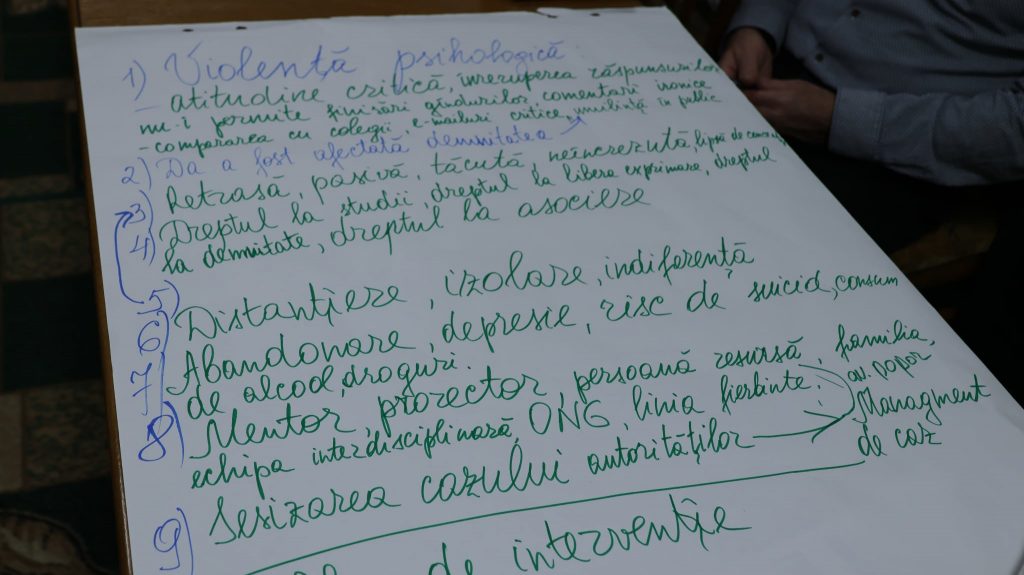 1) Violență psihologică
- atitudine critică, întreruperea răspunsurilor,
nu-i permite finisări gîndurilor, comentarii ironice
- compararea cu colegii, e-mailuri critice, umilință în public
2) Da a fost afectată demnitatea
3) Retrasă, pasivă, tăcută, neîncrezută, lipsă de
4) Dreptul la studii, dreptul la libera exprimare, dreptul
la demnitate, dreptul la asociere
5)
6) Distanțiere, izolare, indiferență
7) Abandonare, depresie, risc de suicid, consum
de alcool, droguri.
8) Mentor, prorector, persoană resursă, familia,
av. popor
echipa interdisciplinară, ONG, linia fierbinte.
9) Sesizarea cazului autorităților Managment
de caz
de intervenție